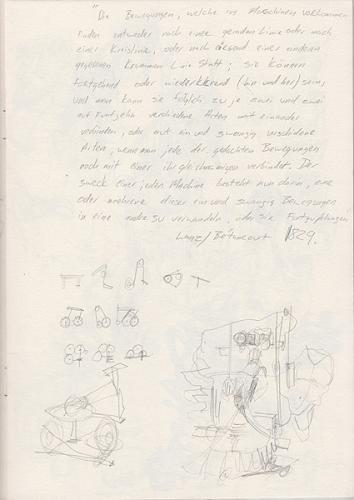 "Die Bewegungen, welche in Maschinen vorkommen
finden entweder nach einer geraden Linie oder nach
einer Kreislinie, oder nach irgend einer anderen
gegebenen Krummen Linie Statt; sie können
fortgehend oder wiederkehrend (hin und her) sein,
und man kann sie folglich zu je zwei und zwei
auf Funfzehn verschiedne Arten mit einander
verbinden, oder auf ein und zwanzig verschidene
Arten, wenn man jede der gedachten Bewegungen
noch mit einer ihr gleichnamigen verbindet. Der
zweck einer jeden Machine besteht nun darin, eine
oder mehrere dieser ein und zwanzig Bewegungen
in eine andre zu verwandeln, oder sie Fortzupflanzen
Lanz/Bétancourt 1829.